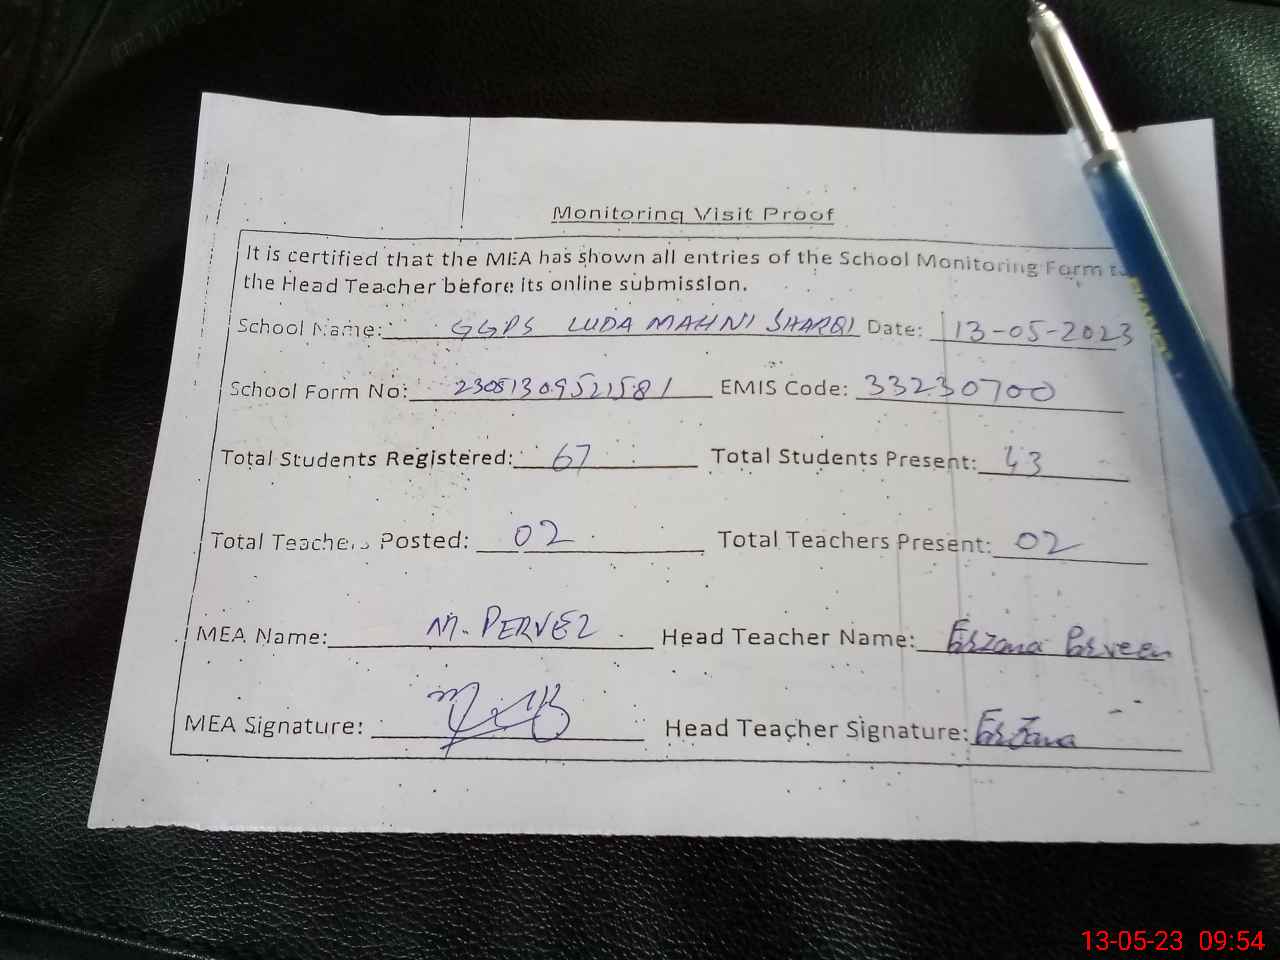 Monitoring Visit Proof
It is certified that the MEA has shown all entries of the School Monitoring Form to
the Head Teacher before its online submission.
School Name: GGPS LUDA MAHNI SHARQI Date: 13-05-2023
School Form No: 23051309521581 EMIS Code: 33230700
Total Students Registered: 67 Total Students Present: 43
Total Teachers Posted: 02 Total Teachers Present: 02
MEA Name: M. PERVEZ Head Teacher Name: Parveen
MEA Signature: Head Teacher Signature:
PIANO
13-05-23 09:54